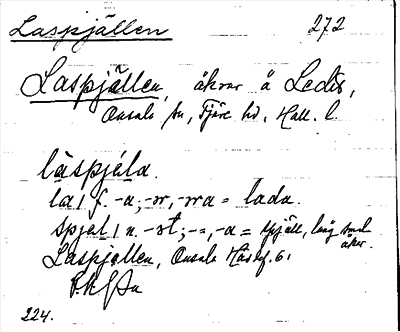 Laspjällen 272
Laspjällen, åkrar å Ledis,
Onsala sn, Fjäre hd, Hall. l.
làspjéla.
la1 f. -a; -ər, -əra = lada.
spjel1 n. -ət; -=, -a = spjäll, lång smal
åker.
Laspjellen, Onsala 6.
224.